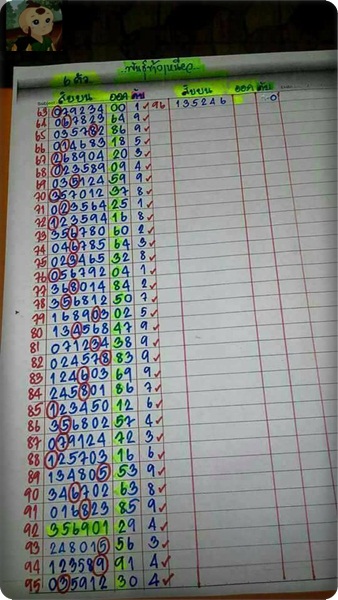 6 ตัว
สิบบน ออก ต้น สิบบน ออก ต้น
63 039234 00 1 ✓ 96 135246 0
64 067829 64 9 ✓
65 035782 86 9 ✓
66 014683 18 5 ✓
67 268904 20 3 ✓
68 023589 09 4 ✓
69 035124 59 9 ✓
70 357012 37 8 ✓
71 023564 25 1 ✓
72 123594 16 8 ✓
73 356780 60 2 ✓
74 046785 64 3 ✓
75 023465 32 8 ✓
76 056792 04 1 ✓
77 368014 84 2 ✓
78 356812 50 7 ✓
79 168903 02 5 ✓
80 134568 47 9 ✓
81 071234 38 9 ✓
82 024578 83 9 ✓
83 124603 69 9 ✓
84 245801 86 7 ✓
85 123450 12 6 ✓
86 356802 57 4 ✓
87 079124 72 3 ✓
88 125703 16 6 ✓
89 134805 53 9 ✓
90 346702 63 8 ✓
91 016823 85 9 ✓
92 356901 29 4 ✓
93 248015 56 3 ✓
94 123589 91 4 ✓
95 035912 30 4 ✓